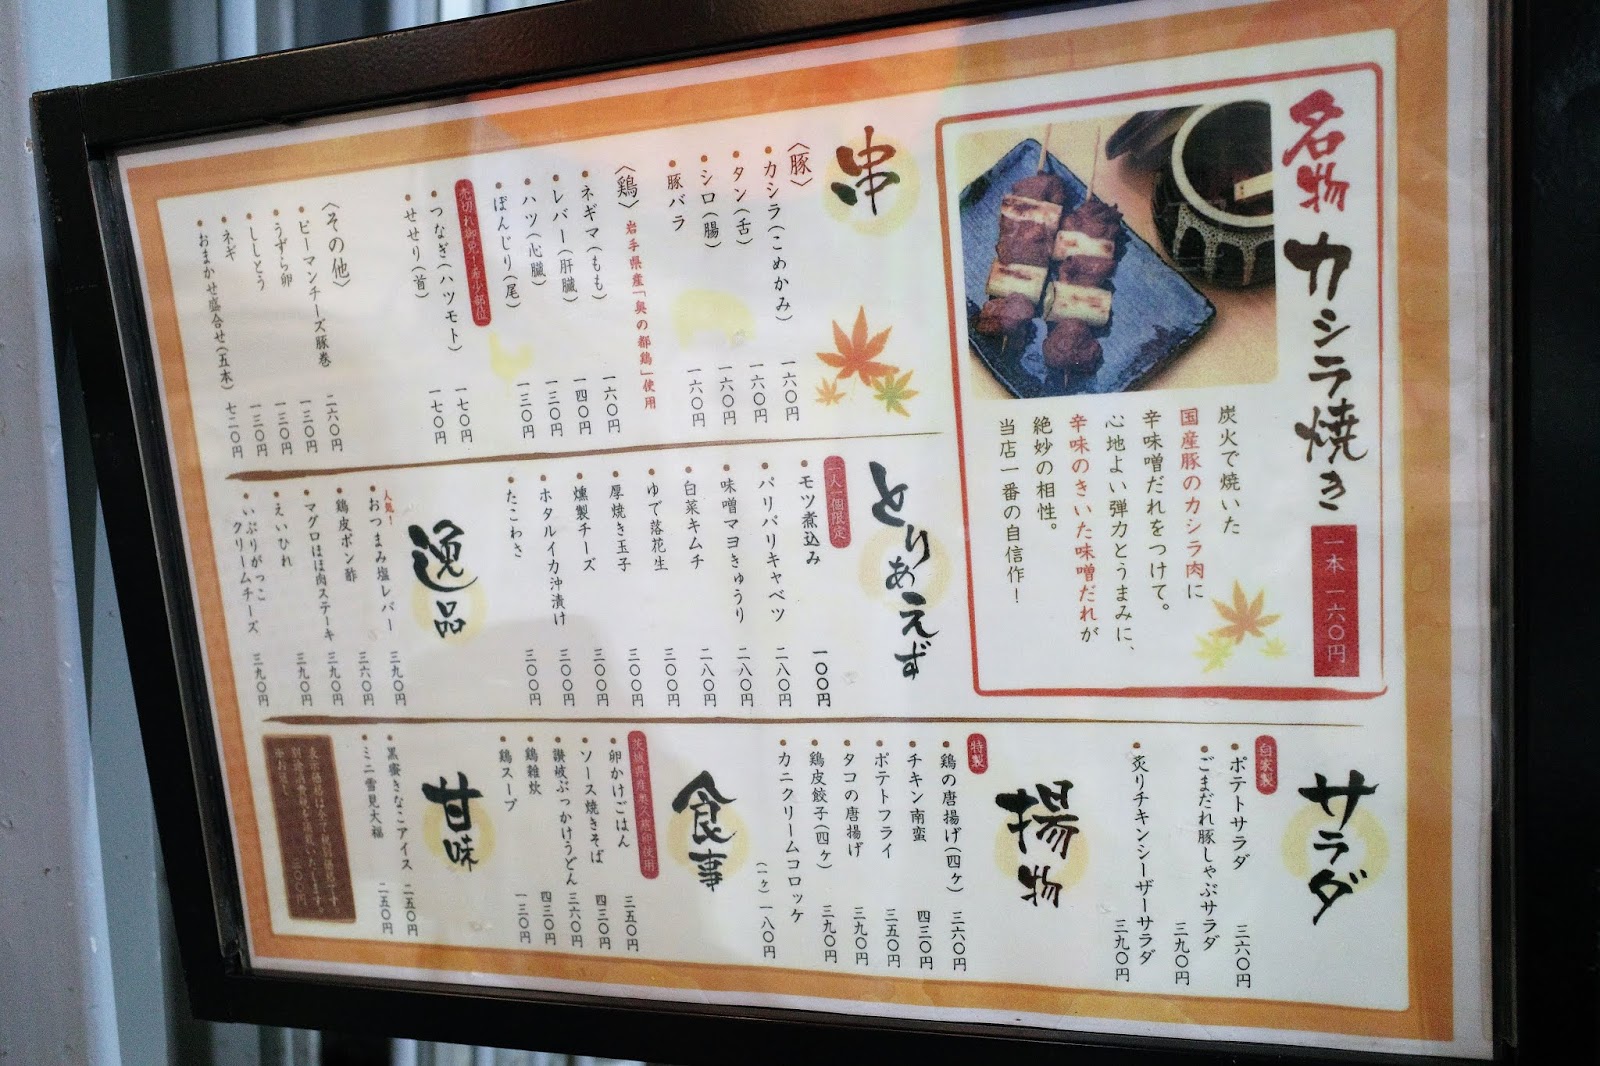 名物 カシラ焼き
一本 一六〇円
炭火で焼いた
国産豚のカシラ肉に
辛味噌だれをつけて。
心地よい弾力とうまみに、
辛味のきいた味噌だれが
絶妙の相性。
当店一番の自信作!
串
〈豚〉
・カシラ(こめかみ) 一六〇円
・タン(舌) 一六〇円
・シロ(腸) 一六〇円
・豚バラ 一六〇円
〈鶏〉 岩手県産「奥の都鶏」使用
・ネギマ(もも) 一六〇円
・レバー(肝臓) 一四〇円
・ハツ(心臓) 一三〇円
・ぼんじり(尾) 一三〇円
売切れ御免!希少部位
・つなぎ(ハツモト) 一七〇円
・せせり(首) 一七〇円
〈その他〉
・ピーマンチーズ豚巻 二六〇円
・うずら卵 一三〇円
・ししとう 一三〇円
・ネギ 一三〇円
・おまかせ盛合せ(五本) 七二〇円
とりあえず
一人一個限定
・モツ煮込み 一〇〇円
・パリパリキャベツ 二八〇円
・味噌マヨきゅうり 二八〇円
・白菜キムチ 二八〇円
・ゆで落花生 三〇〇円
・厚焼き玉子 三〇〇円
・燻製チーズ 三〇〇円
・ホタルイカ沖漬け 三〇〇円
・たこわさ 三〇〇円
逸品
人気!
・おつまみ塩レバー 三九〇円
・鶏皮ポン酢 三六〇円
・マグロほほ肉ステーキ 三九〇円
・えいひれ 三九〇円
・いぶりがっこ
クリームチーズ 三九〇円
サラダ
自家製
・ポテトサラダ 三六〇円
・ごまだれ豚しゃぶサラダ 三九〇円
・炙りチキンシーザーサラダ 三九〇円
揚物
特製
・鶏の唐揚げ(四ヶ) 三六〇円
・チキン南蛮 四三〇円
・ポテトフライ 三五〇円
・タコの唐揚げ 三九〇円
・鶏皮餃子(四ヶ) 三九〇円
・カニクリームコロッケ
(一ヶ)一八〇円
食事
茨城県産奥久慈卵使用
・卵かけごはん 三五〇円
・ソース焼きそば 四三〇円
・讃岐ぶっかけうどん 三六〇円
・鶏雑炊 四三〇円
・鶏スープ 一三〇円
甘味
・黒蜜きなこアイス 二五〇円
・ミニ雪見大福 二五〇円
表示価格は全て税抜価格です。
別途消費税を頂戴いたします。
※お通し 三〇〇円